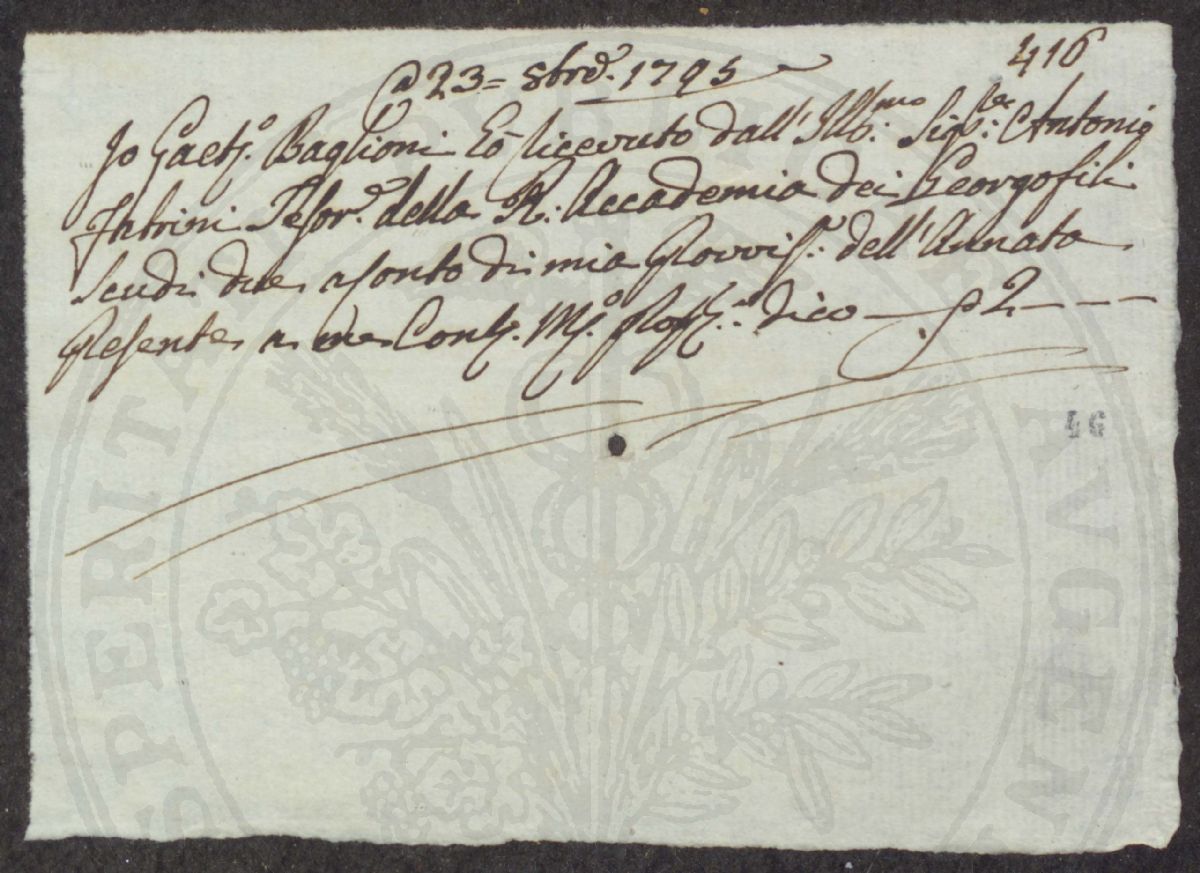 416
A 23 = 8bre. 1795
Io Gaeto. Baglioni Eò ricevuto dall' Illmo. Sigre. Antonio
Tesore. della R. Accademia dei Georgofili
Scudi due a Conto di mia Provvise. dell' Annata
Presente a me Conti. Mo. dico 2 - - -
46
PERITA
AVGEN